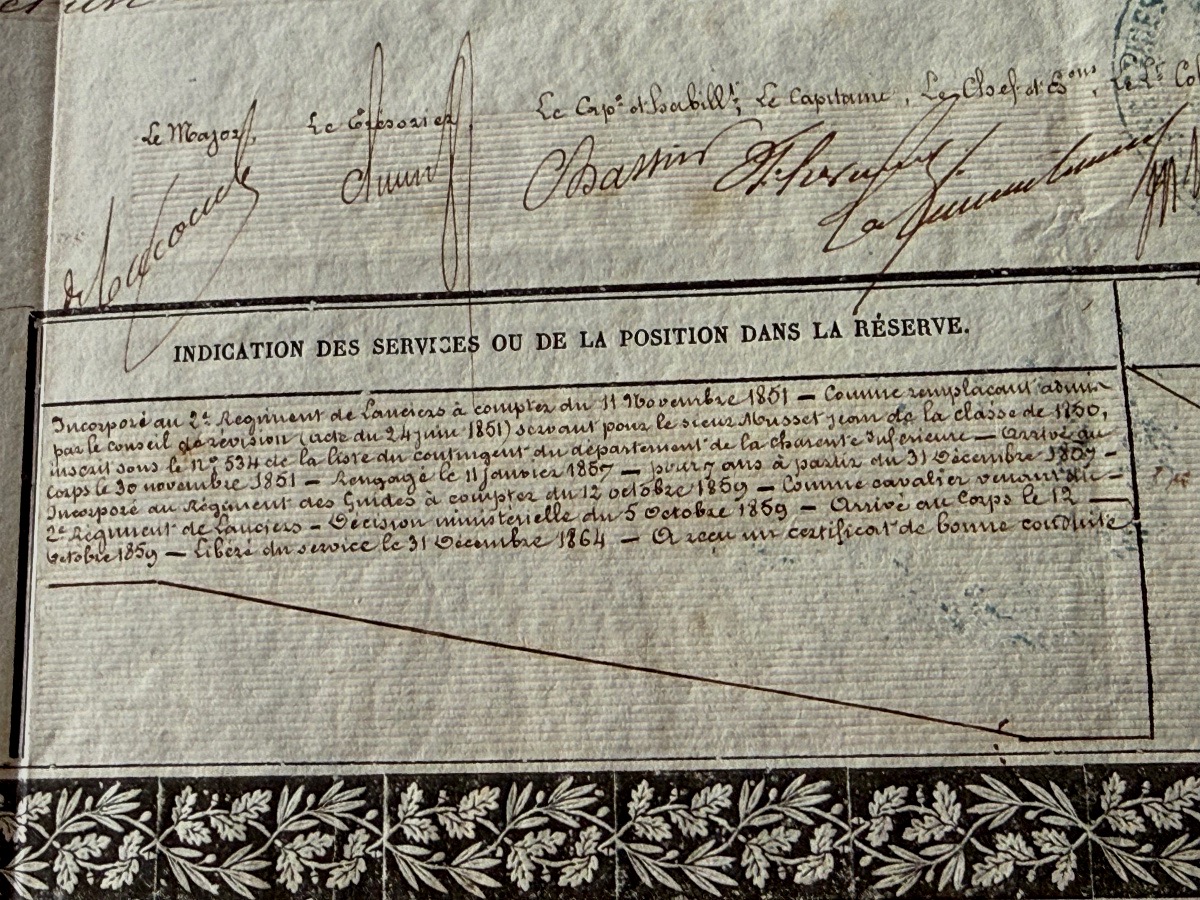 Le Major, Le Trésorier, Le Cap.e d'habill.t, Le Capitaine, Le Chef d'E.ons, Le L.t Col
Bassier
INDICATION DES SERVICES OU DE LA POSITION DANS LA RÉSERVE.
Incorporé au 2.e Régiment de Lanciers à compter du 11 Novembre 1851 — Comme remplaçant admis
par le conseil de révision (acte du 24 juin 1851) servant pour le sieur Mousset Jean de la classe de 1850,
inscrit sous le n.o 534 de la liste du contingent du département de la charente Inférieure — Arrivé au
corps le 30 novembre 1851 — Rengagé le 11 Janvier 1857 — pour 7 ans à partir du 31 Décembre 1857 —
Incorporé au Régiment des Guides à compter du 12 octobre 1859 — Comme cavalier venant du —
2.e Régiment de Lanciers — Décision ministérielle du 5 Octobre 1859 — Arrivé au Corps le 12 —
Octobre 1859 — Libéré du service le 31 Décembre 1864 — A reçu un certificat de bonne conduite